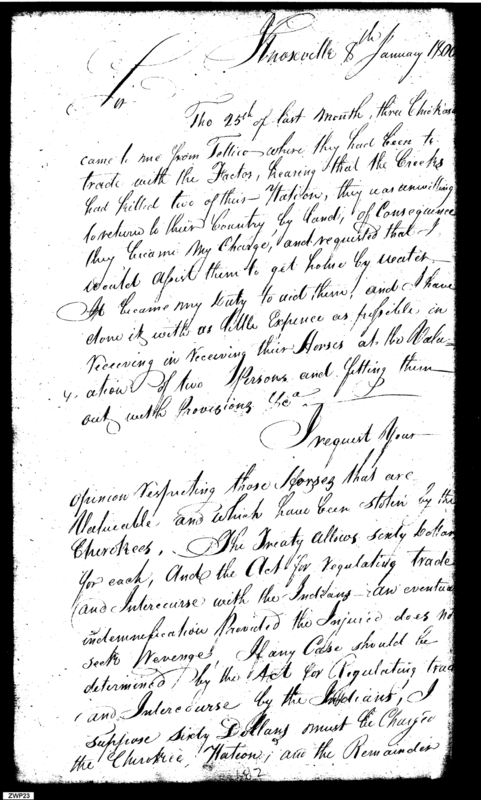 Knoxville 8th January 1800
Sir
The 25th of last Month, three Chickasa
came to me from Tellico where they had been to
trade with the Factor, hearing that the Creeks
had killed two of their Nation, they was unwilling
to return to their Country, by land; of Consequence
they became My Charge, and requested that I
would assist them to get home by water
It became my Duty to aid them, and I have
done it with as little Expence as possible in
receiving in receiving their Horses at the Valu-
ation of two Persons and fitting them
out with Provisions &ca
I request Your
opinion respecting those Horses that are
Valuable and which have been stolen by the
Cherokees. The Treaty allows sixty Dollars
for each, And the Act for regulating trade
and Intercourse with the Indians an eventual
indemnification Provided the Injured does not
seek Revenge, If any Case should be
determined, by the Act for Regulating trade
and Intercourse by the Indians, I
suppose sixty Dollars must be Charged
the Cherokee Nation; and the Remainder
182
ZWP23